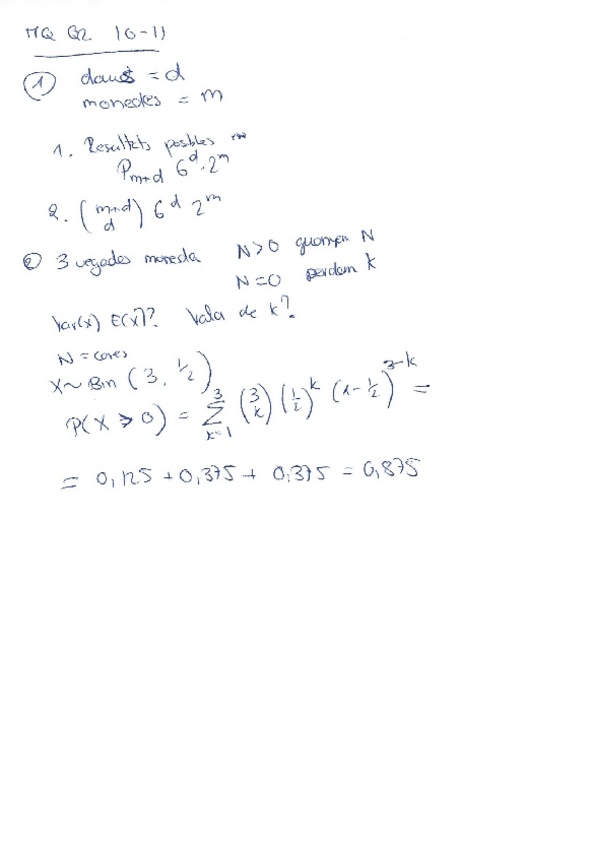 MQ Q2 10-11
① daus = d
monedes = m
1. Resultets posibles
P_{m+d} 6^d · 2^m
2. \binom{m+d}{d} 6^d 2^m
② 3 vegades moneda N>0 guanyem N
N=0 perdem k
Var(x) E(x)? Valor de k?
N = cares
X ~ Bin (3, 1/2)
P(X > 0) = \sum_{k=1}^{3} \binom{3}{k} (1/2)^k (1-1/2)^{3-k} =
= 0,125 + 0,375 + 0,375 = 0,875